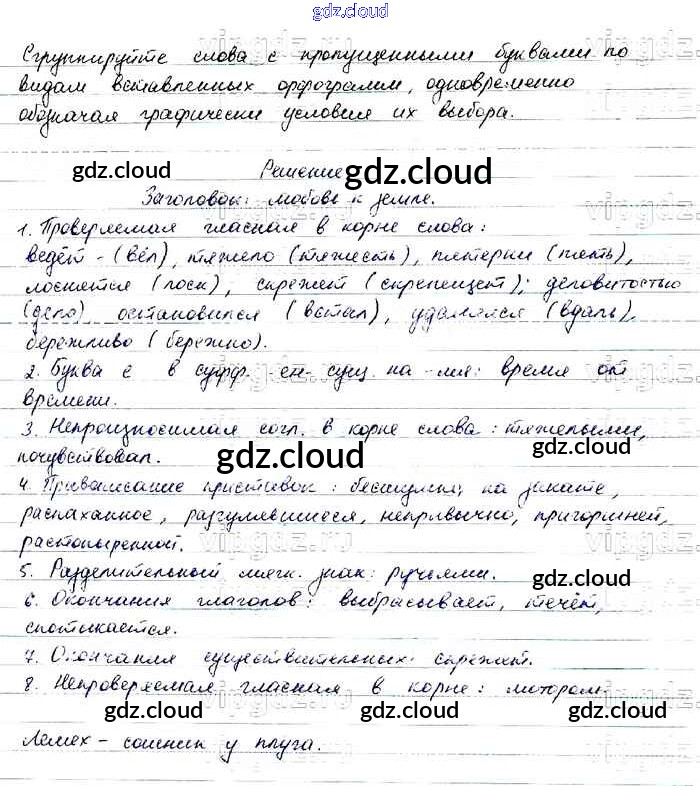 gdz.cloud
Сгруппируйте слова с пропущенными буквами по
видам вставленных орфограмм, одновременно
обозначая графически условия их выбора.
gdz.cloud
Решение
gdz.cloud
Заголовок: любовь к земле.
1. Проверяемая гласная в корне слова:
ведёт - (вёл), тяжело (тяжесть), пятерни (пять),
лоснятся (лоск), скрежет (скрепещет); деловитостью
(дело), остановился (встал), удалялся (вдаль),
бережливо (бережно).
2. Буква е в суфф. -ен- сущ. на -мя: время от
времени.
3. Непроизносимая согл. в корне слова: тяжелыми,
gdz.cloud
почувствовал.
gdz.cloud
4. Правописание приставок: бесшумны, на закате,
распаханное, разгулявшиеся, непривычно, пригоршней,
растопыренной.
5. Разделительный мягк. знак: ручьями.
gdz.cloud
6. Окончания глаголов: выбрасывает, течёт,
спотыкается.
7. Окончания существительных: скрежет.
8. Непроверяемая гласная в корне: мотором
gdz.cloud
gdz.cloud
gdz.cloud
Лемех - сошник у плуга.